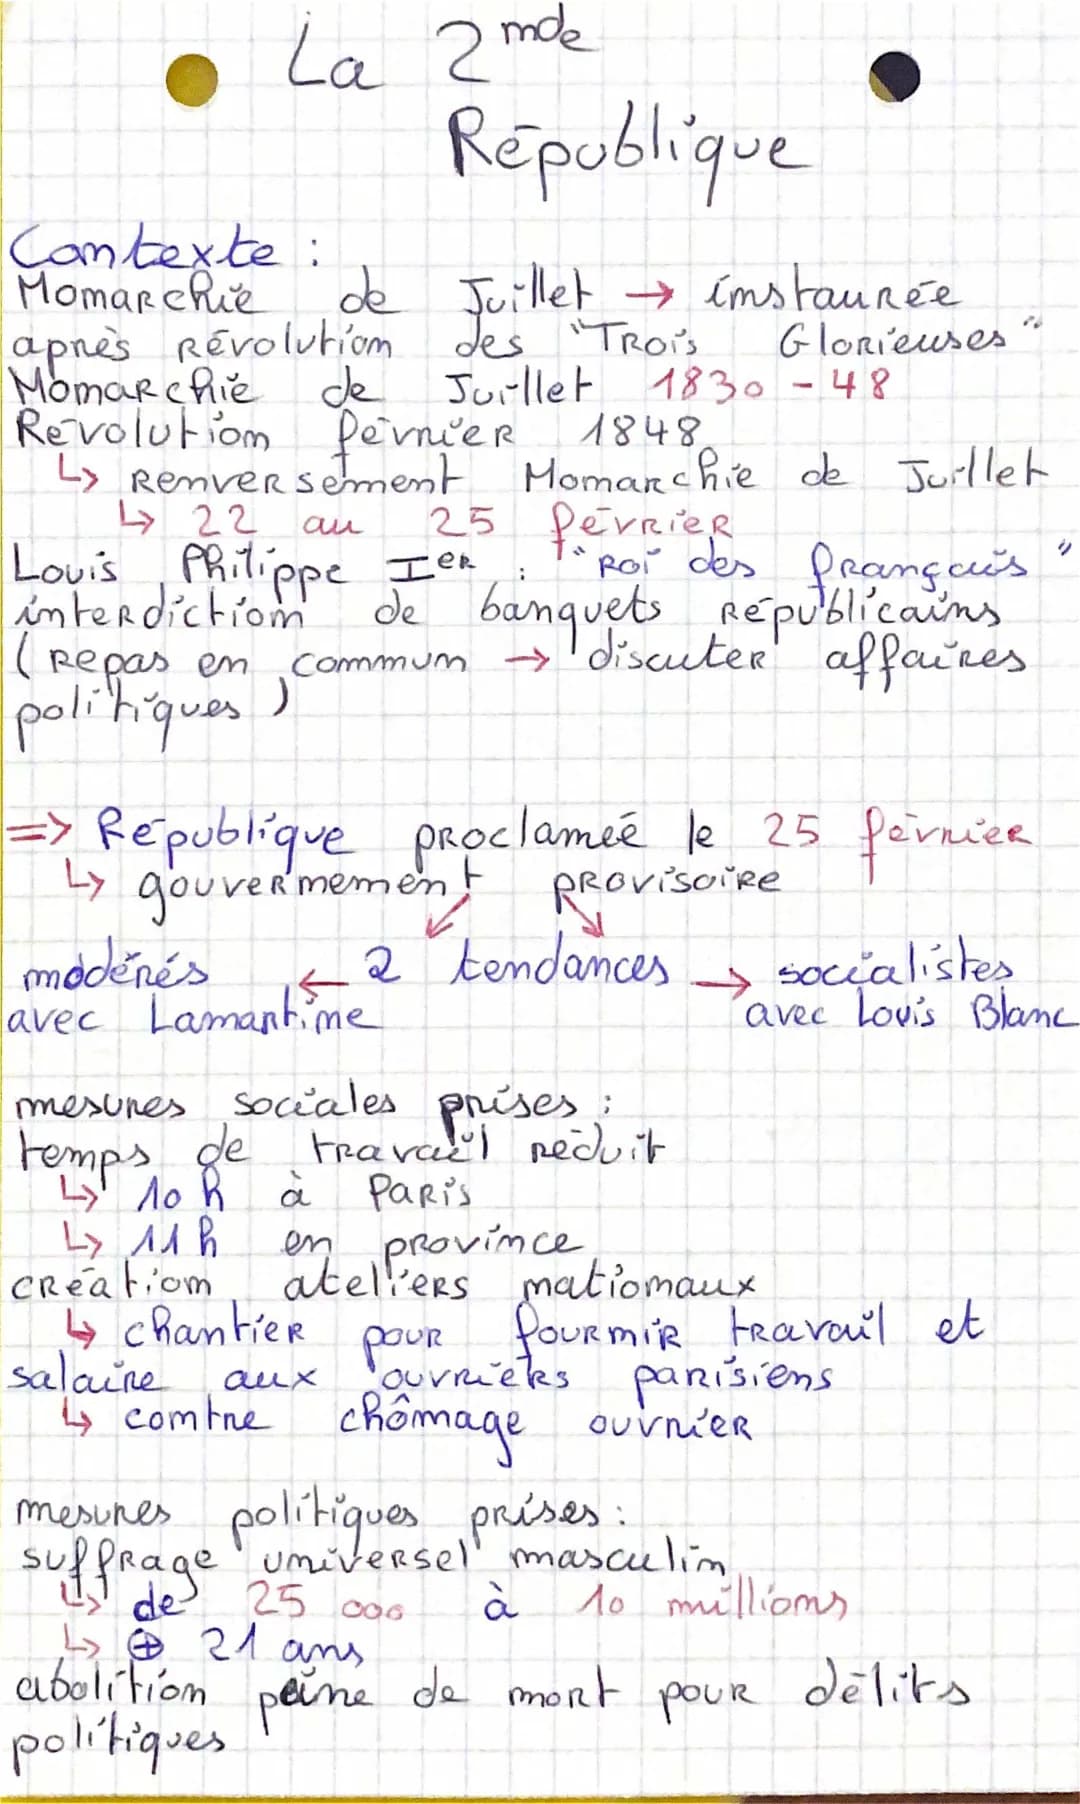 La 2nde
République
Contexte :
Monarchie de Juillet → instaurée
après révolution des "Trois Glorieuses"
Monarchie de Juillet 1830 - 48
Révolution février 1848
↳ renversement Monarchie de Juillet
↳ 22 au 25 février
Louis Philippe Ier : "Roi des français"
interdiction de banquets républicains
(repas en commun → discuter affaires
politiques)
=> République proclamée le 25 février
↳ gouvernement provisoire
modérés ← 2 tendances → socialistes
avec Lamartine avec Louis Blanc
mesures sociales prises :
temps de travail réduit
↳ 10 h à Paris
↳ 11 h en province
création ateliers nationaux
↳ chantier pour fournir travail et
salaire aux ouvriers parisiens
↳ contre chômage ouvrier
mesures politiques prises :
suffrage universel masculin
↳ de 25 000 à 10 millions
↳ ⊕ 21 ans
abolition peine de mort pour délits
politiques